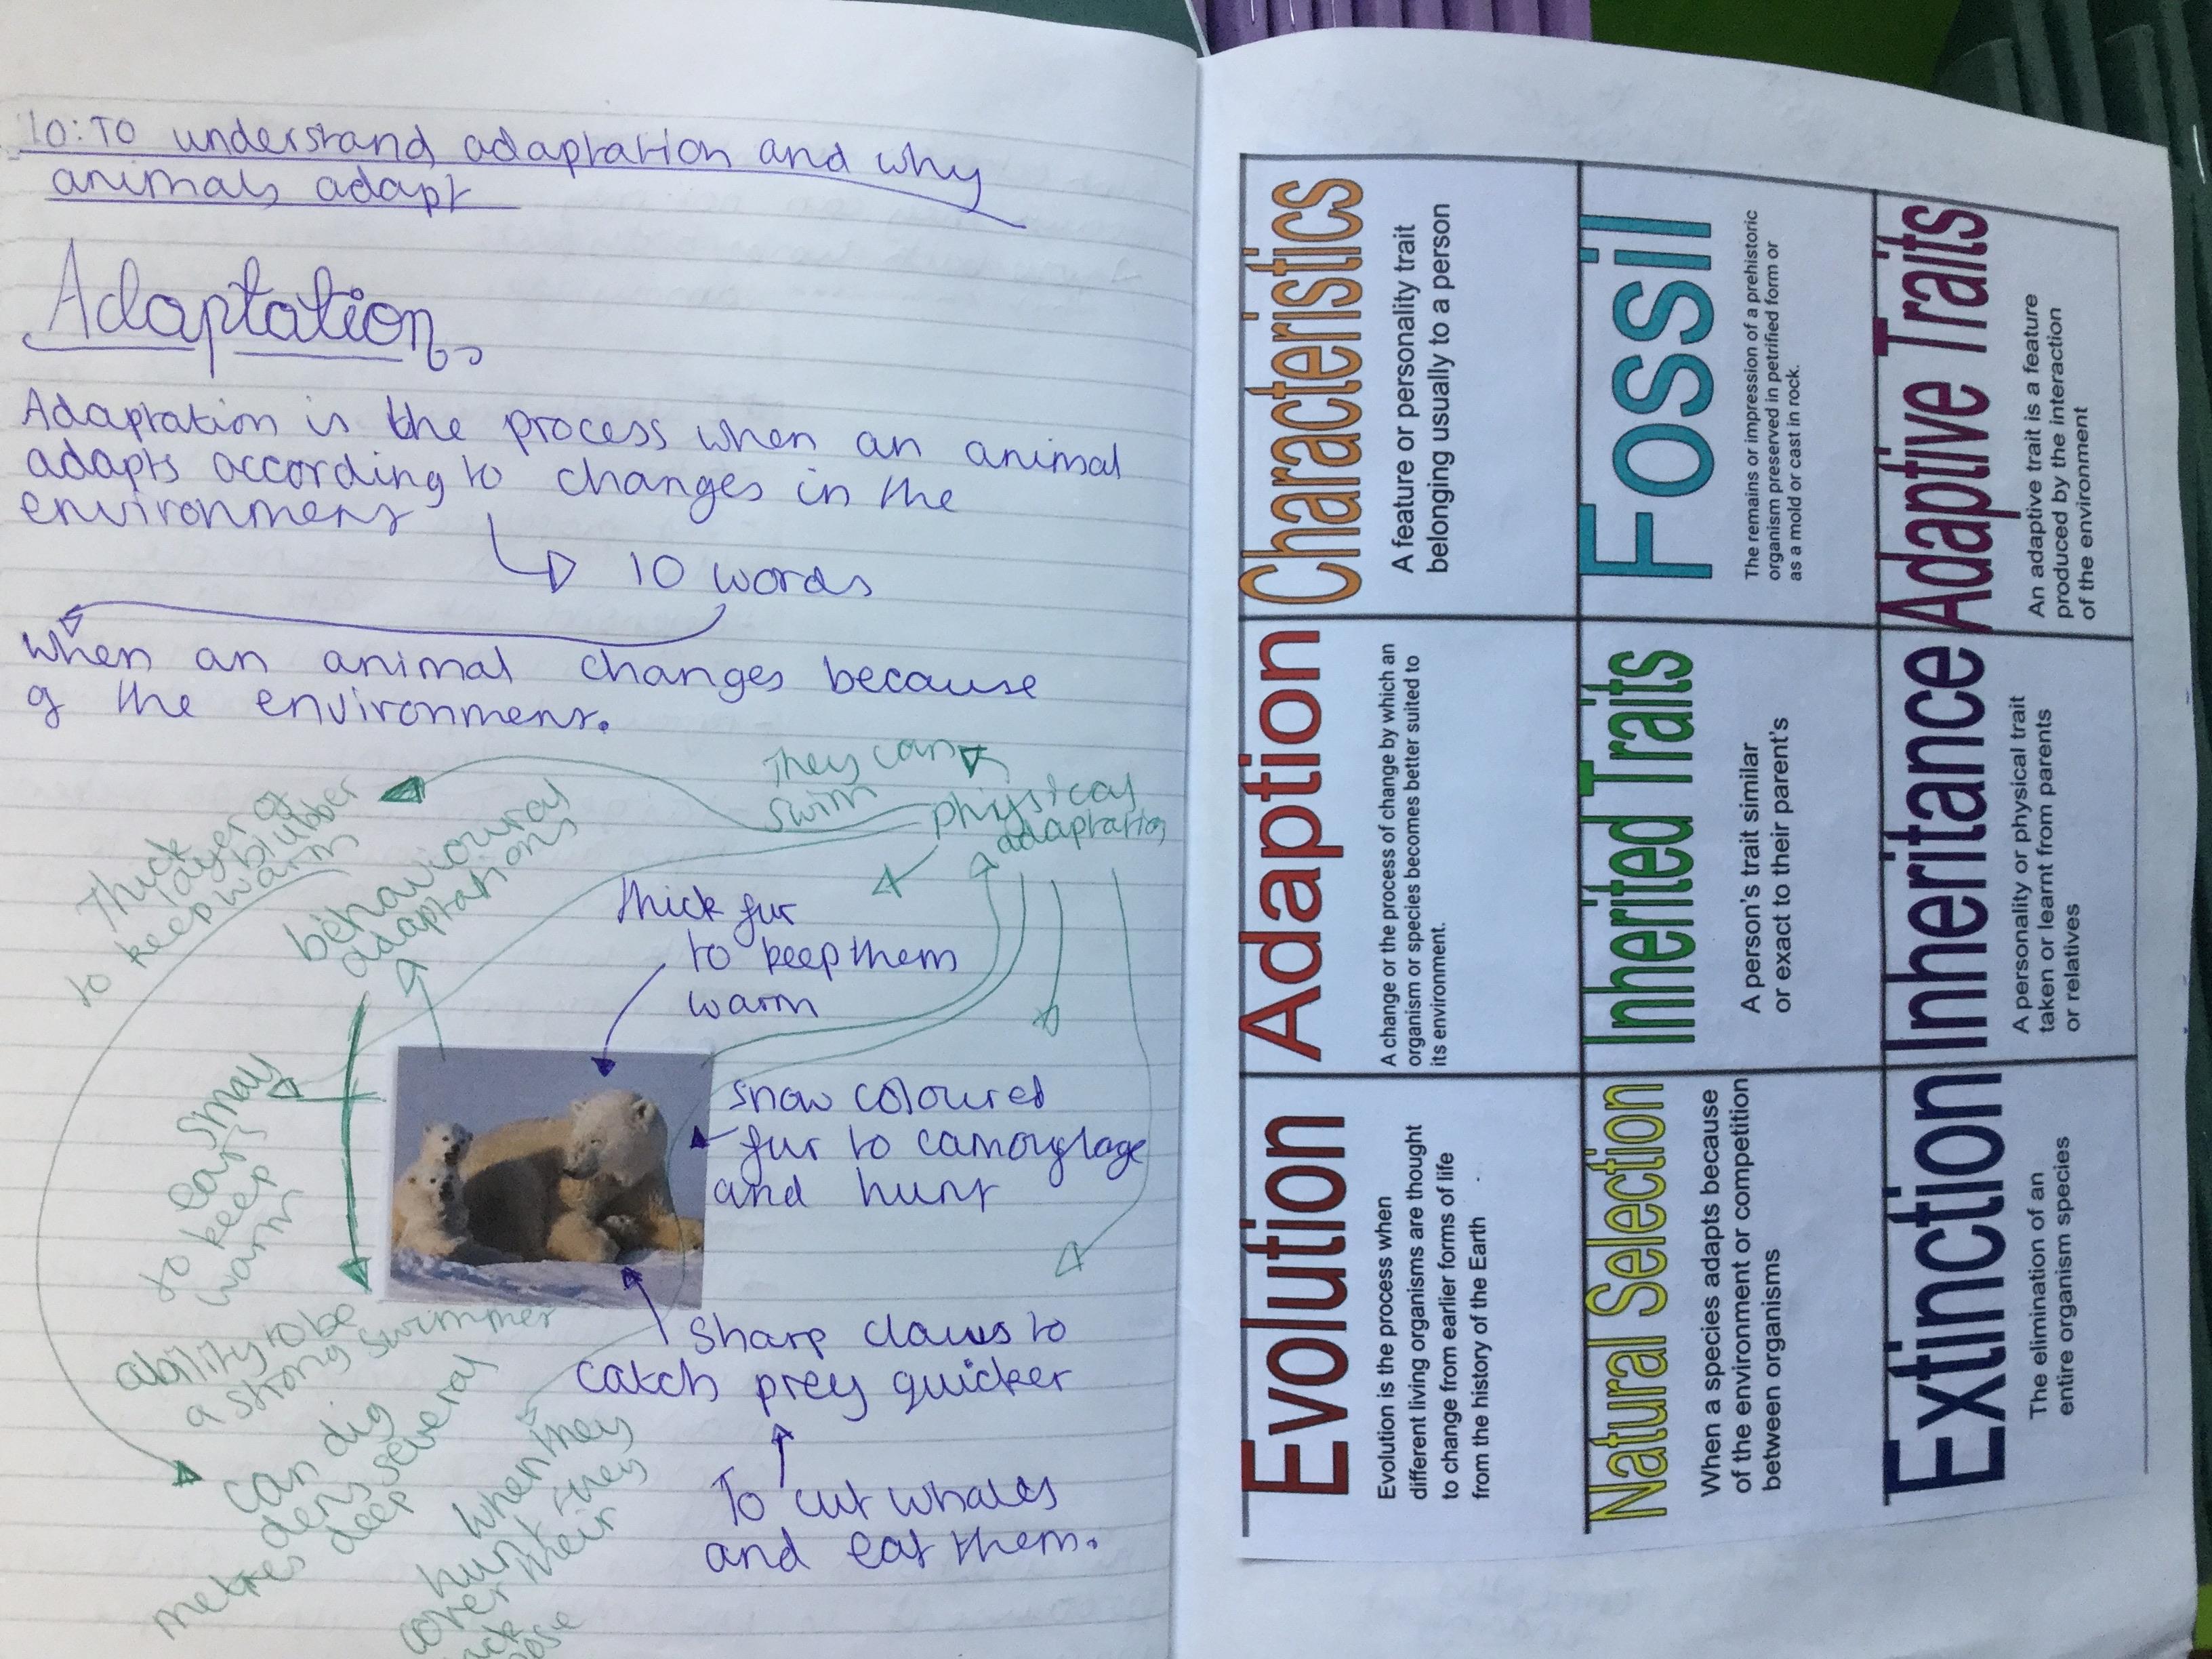 LO: TO understand adaptation and why
animals adapt
Adaptation
Adaptation is the process when an animal
adapts according to changes in the
environment
10 words
When an animal changes because
of the environment.
They can
swim
physical
adaptation
Thick
layer of
blubber
to keep warm
behavioural
adaptations
thick fur
to keep them
warm
small
ears
to keep
warm
snow coloured
fur to camouflage
and hunt
ability to be
a strong swimmer
sharp claws to
catch prey quicker
can dig
dens several
metres deep
when they
hunt they
cover their
To cut whales
and eat them.
Evolution
Evolution is the process when
different living organisms are thought
to change from earlier forms of life
from the history of the Earth
Adaption
A change or the process of change by which an
organism or species becomes better suited to
its environment.
Characteristics
A feature or personality trait
belonging usually to a person
Natural Selection
When a species adapts because
of the environment or competition
between organisms
Inherited Traits
A person's trait similar
or exact to their parent's
Fossil
The remains or impression of a prehistoric
organism preserved in petrified form or
as a mold or cast in rock.
Extinction
The elimination of an
entire organism species
Inheritance
A personality or physical trait
taken or learnt from parents
or relatives
Adaptive Traits
An adaptive trait is a feature
produced by the interaction
of the environment